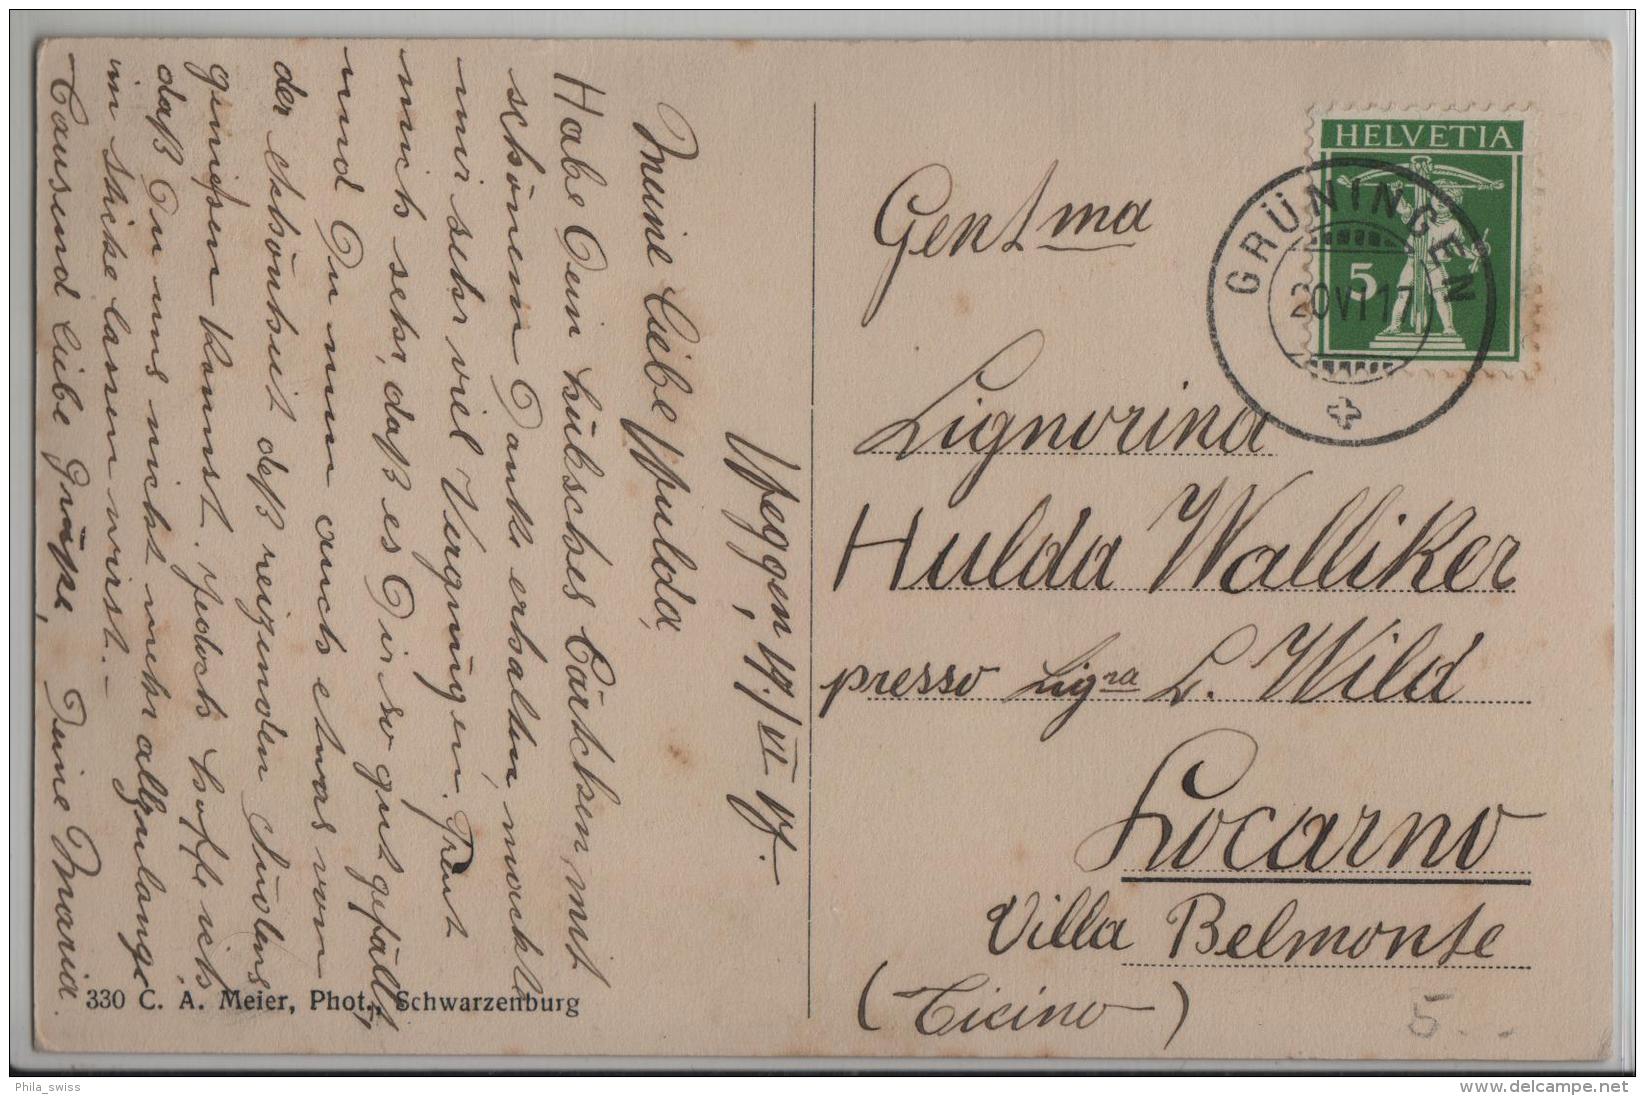 Itzgen, 19./VI. 17.
Meine liebe Hulda,
Habe Dein hübsches Cärtchen, mit
schönem Danke erhalten, machte
mir sehr viel Vergnügen. Freut
mich sehr, daß es Dir so gut gefällt,
und Du nun auch etwas von
der Schönheit deß reizenden Südens
genießen kannst. Jedoch hoffe ich
daß Du uns nicht mehr allzulange
im Stiche lassen wirst. –
Tausend liebe Grüße, Deine Maria.
330 C. A. Meier, Phot., Schwarzenburg
HELVETIA
5
GRÜNINGEN
20 VI 17
Gentma
Signorina
Hulda Walliker
presso Sigra L. Wild
Locarno
Villa Belmonte
(Ticino)
5. -
Phila_swiss
www.delcampe.net